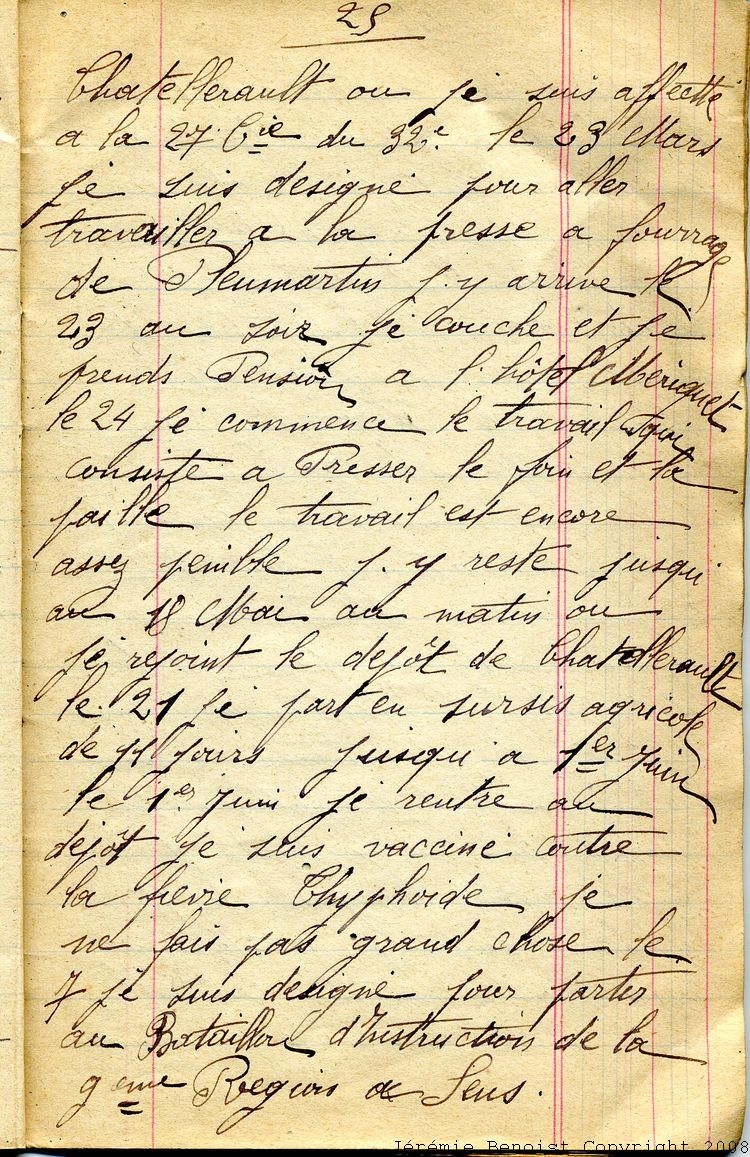 25
Chatellerault ou je suis affecté
a la 27 Cie du 32e. le 23 Mars
je suis designé pour aller
travailler a la presse a fourrage
de Pleumartin j. y arrive le
23 au soir je couche et je
prends Pension a l. hôtel Mériguet
le 24 je commence le travail qui
consiste a Presser le foin et la
paille le travail est encore
assez penible j. y reste jusqu
au 18 Mai au matin ou
je rejoint le depôt de Chatellerault
le 21 je part en sursis agricole
de 11 jours jusqu a 1er Juin
le 1er Juin je rentre au
depôt je suis vacciné contre
la fievre Thyphoide je
ne fais pas grand chose le
7 je suis designé pour partir
au Bataillon d'Instruction de la
9eme Region a Sens.
Jérémie Benoist Copyright 2008